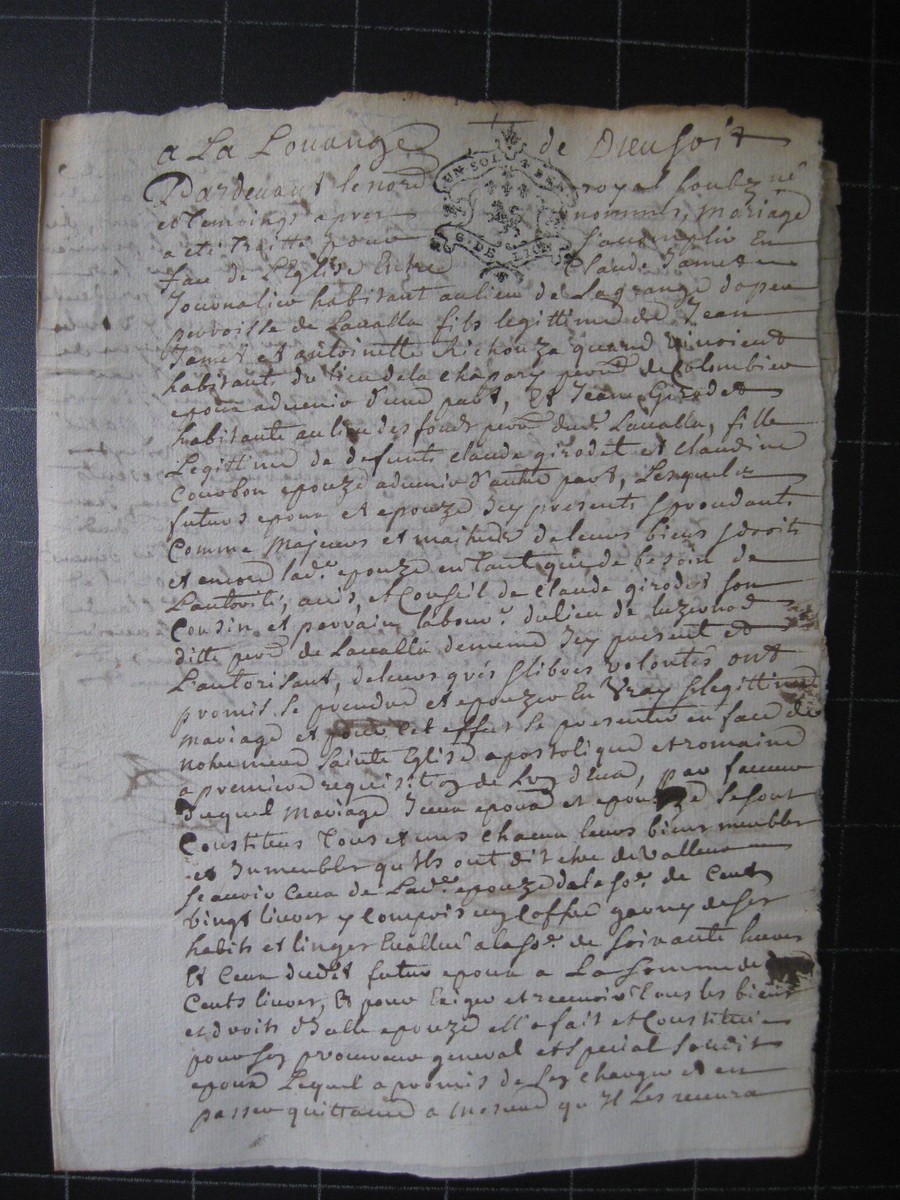 a La Louange de Dieu soit
Pardevant le no.re royal soubz.né
et temoings apres nommés, mariage
a été traitté pour s'accomplir en
face de L'Eglise Entre Claude Jamet
Journalier habitant au lieu de Lagrange
parroisse de Lavalla fils legittime de Jean
Jamet et antoinette Richouza quand vivoient
habitants du lieu de la Chapary parr.e de Colombier
epoux advenir d'une part, Et Jeane Girodet
habitante au lieu des fonds parr.e dud.t Lavalla, fille
Legittime de defunts claude girodet et claudine
Courbon epouze advenir d'autre part, Lesquels
futurs epoux et epouze Icy presents
Comme majeurs et maitres de leurs biens droits
et encore lad.e epouze en tant que de besoin de
L'autorité, avis, et Conseil de Claude girodet son
Cousin et parrain labour.r du lieu de
ditte parr.e de Lavalla Icy present et
L'autorisant, de leurs grés libres volontés ont
promis se prendre et epouzer En Vray legittime
mariage et pour cet effet se presenter en face de
notre mere Sainte Eglise apostolique et romaine
a premiere requisiton de L'un d'eux, par faveur
duquel mariage Iceux epoux et epouze se sont
Constitués tous et uns chacun leurs biens meubles
et Immeubles qu'Ils ont dit etre de valleur
scavoir Ceux de Lad.e epouze de la so.e de Cent
vingt livres y compris un Coffre garny de ses
habits et linges Evallué a la so.e de soixante livres
Et Ceux dudit futur epoux a La somme de
Cents livres, Et pour Exiger et recevoir tous les biens
et droits d'Elle epouze elle a fait et Constitué
pour son procureur general et special sondit
epoux Lequel a promis de s'en charger et en
passer quittance a mesure qu'Il Les recevra
UN SOL
G. DE LYON